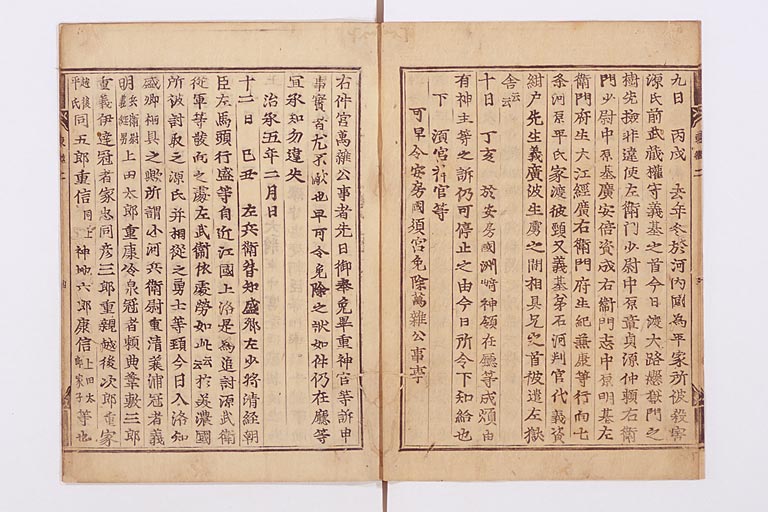 九日 丙戌 去年冬於河内國為平家所被殺害
源氏前武蔵權守義基之首今日渡大路懸獄門之
樹先撿非違使左衛門少尉中原章貞源仲頼右衛
門少尉中原基廣安倍資成右衛門志中原明基左
衛門府生大江經廣右衛門府生紀兼康等行向七
条河原平氏家渡彼頸又義基弟石河判官代義資
紺户先生義廣被生虜之間相具兄之首被遣左獄
舎云云
十日 丁亥 於安房國洲崎神領在廳等成煩由
有神主等之訴仍可停止之由今日所令下知給也
下 須宮神官等
可早令安房國須宮免除萬雜公事事
右件宮萬雜公事者先日御奉免畢重神官等訴申
事實者尤不敵也早可令免除之状如件仍在廳等
宜承知勿違失
治承五年二月日
十二日 己丑 左兵衛督知盛卿左少将清經朝
臣左馬頭行盛等自近江國上洛是為追討源武衛
從軍等發向之處左武衛依處勞如此云云於美濃國
所被討取之源氏并相從之勇士等頸今日入洛知
盛卿相具之與所謂小河兵衛尉重清蓑浦冠者義
明兵衛尉義經男上田太郎重康冷泉冠者頼典葦敷三郎
重義伊達冠者家忠同彦三郎重親越後次郎重家
越後平氏同五郎重信同上神地六郎康信上田太郎家子等也
東鑑二